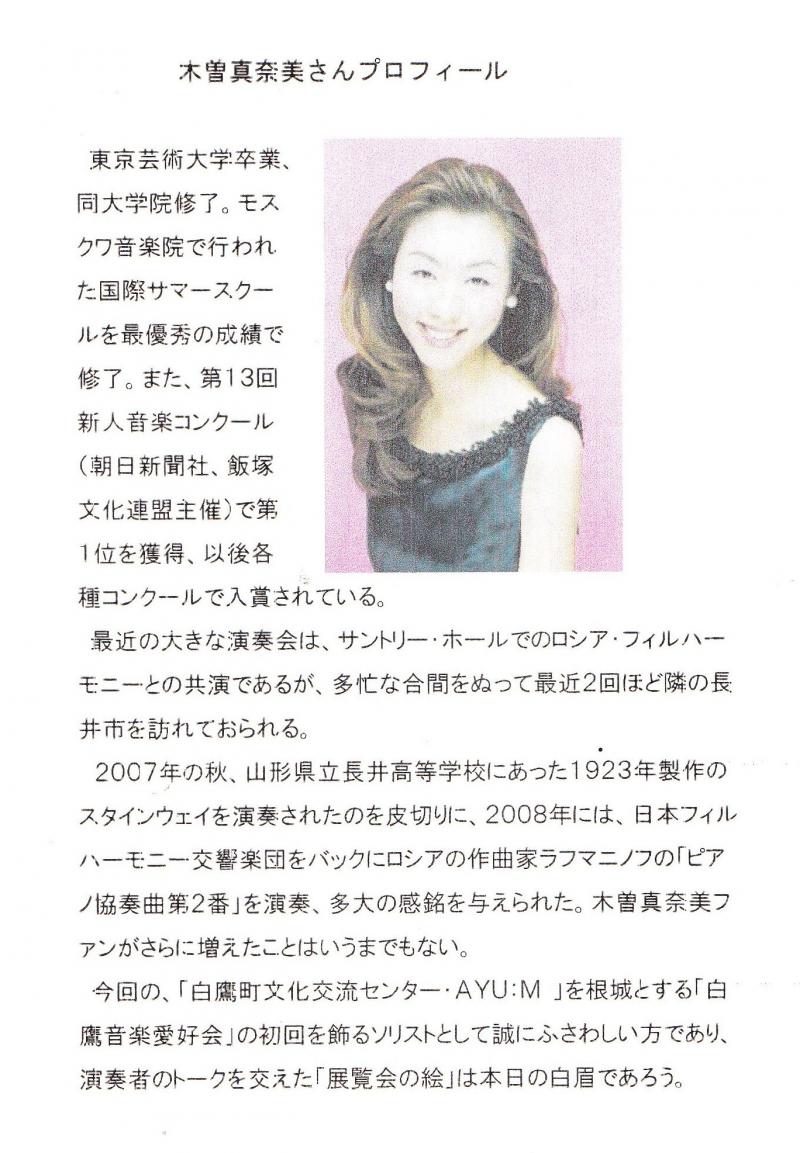 木曽真奈美さんプロフィール
東京芸術大学卒業、
同大学院修了。モス
クワ音楽院で行われ
た国際サマースクー
ルを最優秀の成績で
修了。また、第13回
新人音楽コンクール
（朝日新聞社、飯塚
文化連盟主催）で第
1位を獲得、以後各
種コンクールで入賞されている。
最近の大きな演奏会は、サントリー・ホールでのロシア・フィルハー
モニーとの共演であるが、多忙な合間をぬって最近2回ほど隣の長
井市を訪れておられる。
2007年の秋、山形県立長井高等学校にあった1923年製作の
スタインウェイを演奏されたのを皮切りに、2008年には、日本フィル
ハーモニー交響楽団をバックにロシアの作曲家ラフマニノフの「ピア
ノ協奏曲第2番」を演奏、多大の感銘を与えられた。木曽真奈美フ
ァンがさらに増えたことはいうまでもない。
今回の、「白鷹町文化交流センター・AYU:M 」を根城とする「白
鷹音楽愛好会」の初回を飾るソリストとして誠にふさわしい方であり、
演奏者のトークを交えた「展覧会の絵」は本日の白眉であろう。